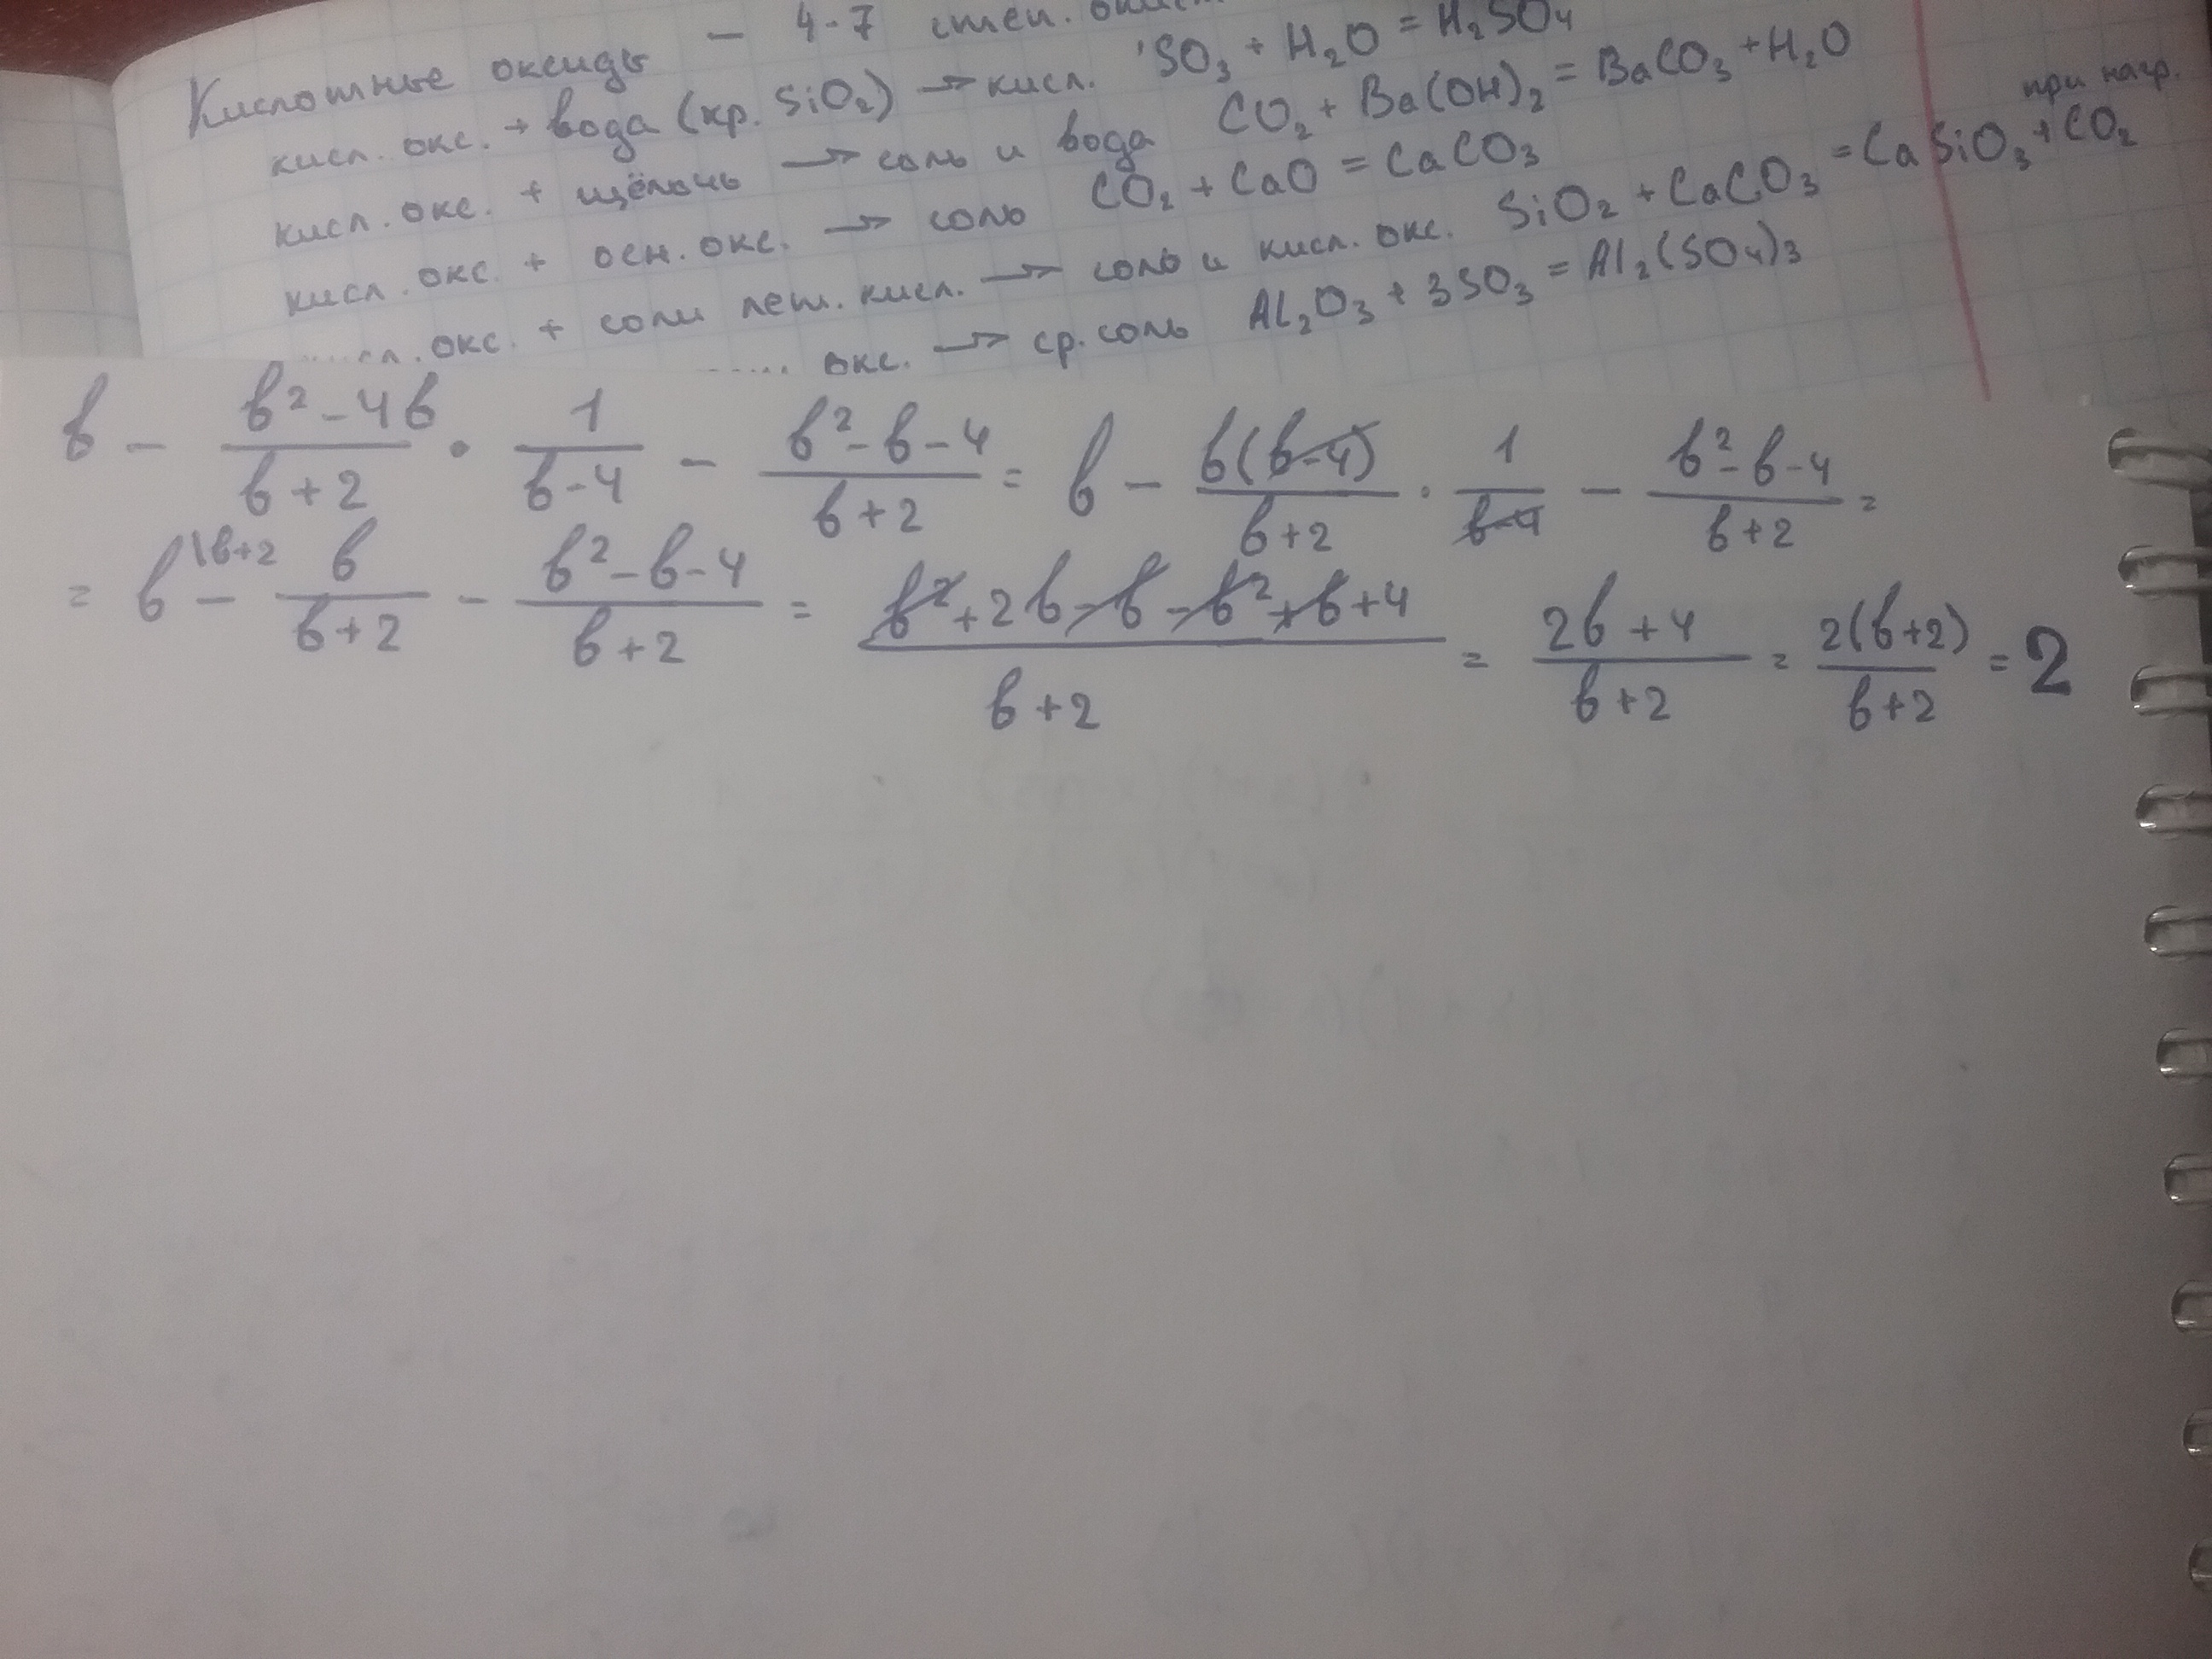 Кислотные оксиды – 4-7 степ.
кисл. окс. + вода (кр. SiO₂) → кисл. SO₃ + H₂O = H₂SO₄
кисл. окс. + щёлочь → соль и вода CO₂ + Ba(OH)₂ = BaCO₃ + H₂O
кисл. окс. + осн. окс. → соль CO₂ + CaO = CaCO₃
при нагр.
окс. + соли лет. кисл. → соль и кисл. окс. SiO₂ + CaCO₃ = CaSiO₃ + CO₂
окс. → ср. соль Al₂O₃ + 3SO₃ = Al₂(SO₄)₃
b - (b² - 4b)/(b+2) · 1/(b-4) - (b² - b - 4)/(b+2) = b - b(b-4)/(b+2) · 1/(b-4) - (b² - b - 4)/(b+2) =
= b \b+2 - b/(b+2) - (b² - b - 4)/(b+2) = (b² + 2b - b - b² + b + 4)/(b+2) = (2b + 4)/(b+2) = 2(b+2)/(b+2) = 2